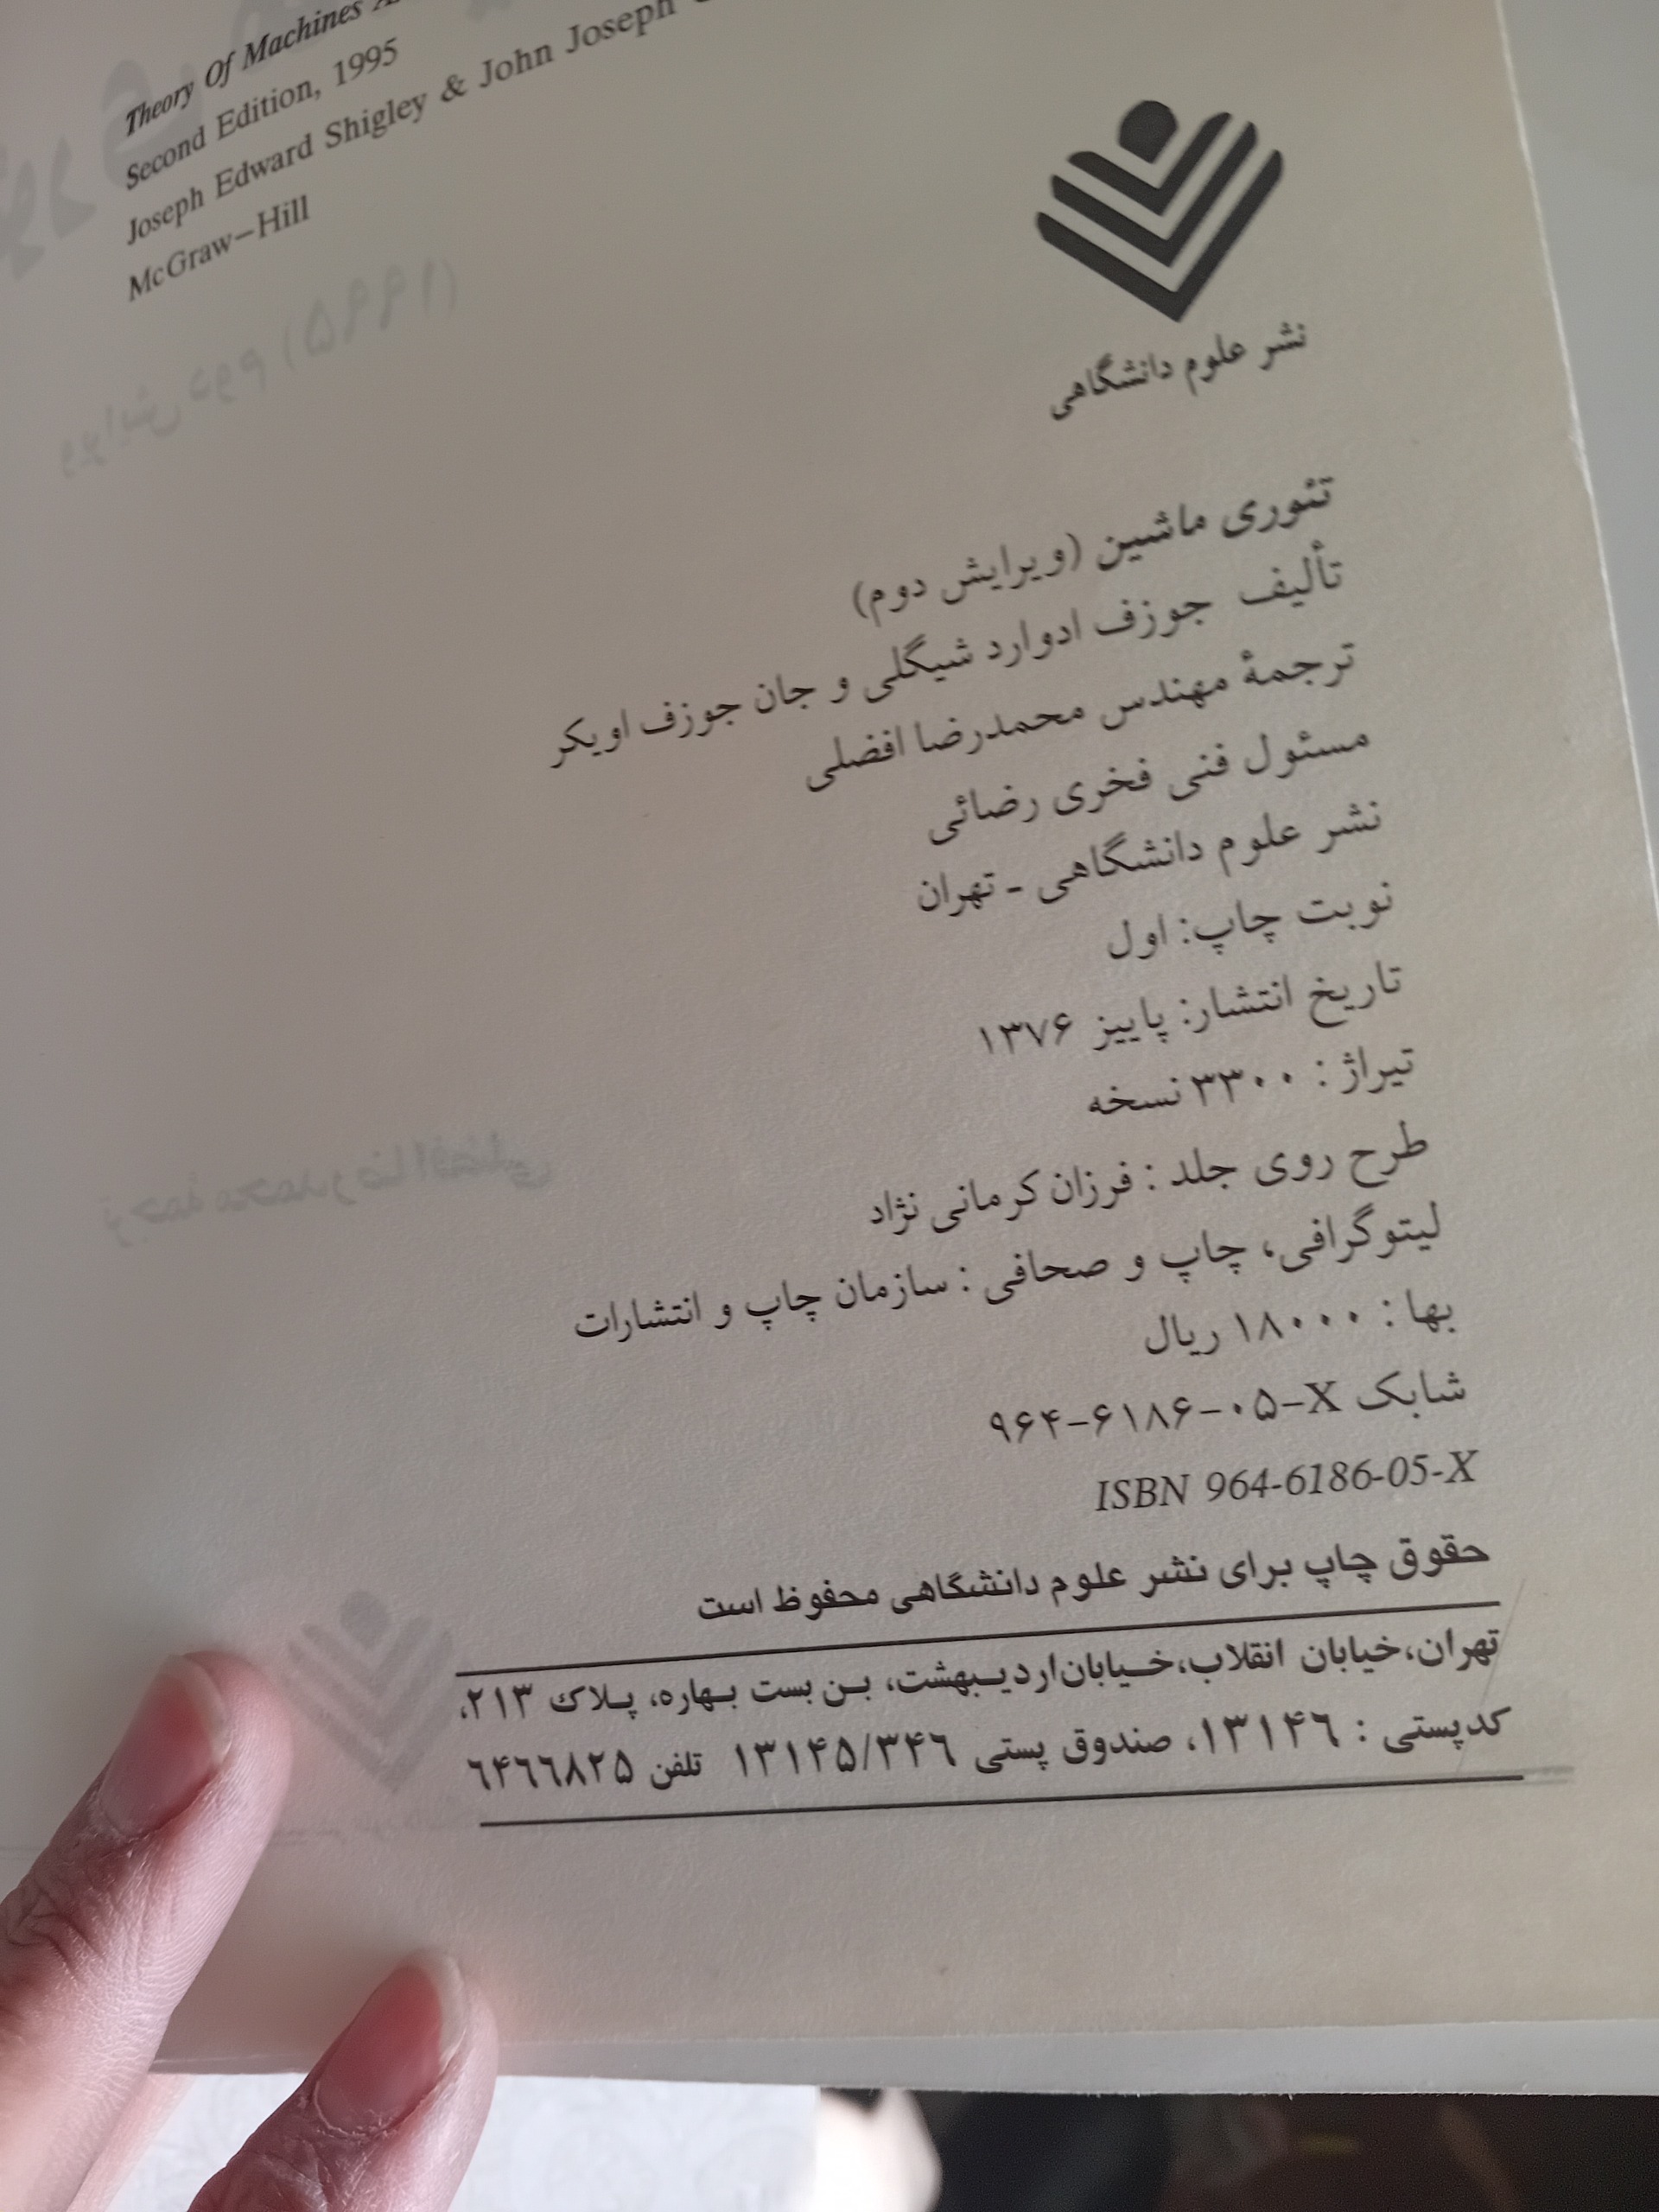 Theory Of Machines
Second Edition, 1995
Joseph Edward Shigley & John Joseph
McGraw–Hill
نشر علوم دانشگاهی
تئوری ماشین (ویرایش دوم)
تألیف جوزف ادوارد شیگلی و جان جوزف اویکر
ترجمهٔ مهندس محمدرضا افضلی
مسئول فنی فخری رضائی
نشر علوم دانشگاهی - تهران
نوبت چاپ: اول
تاریخ انتشار: پاییز ۱۳۷۶
تیراژ : ۳۳۰۰ نسخه
طرح روی جلد : فرزان کرمانی نژاد
لیتوگرافی، چاپ و صحافی : سازمان چاپ و انتشارات
بها : ۱۸۰۰۰ ریال
شابک ۹۶۴-۶۱۸۶-۰۵-X
ISBN 964-6186-05-X
حقوق چاپ برای نشر علوم دانشگاهی محفوظ است
تهران، خیابان انقلاب، خیابان اردیبهشت، بن بست بهاره، پلاک ۲۱۳،
کدپستی : ۱۳۱۴۶، صندوق پستی ۱۳۱۴۵/۳۴۶ تلفن ۶۴۶۶۸۲۵
ویرایش دوم (۱۹۹۵)
ترجمهٔ محمدرضا افضلی